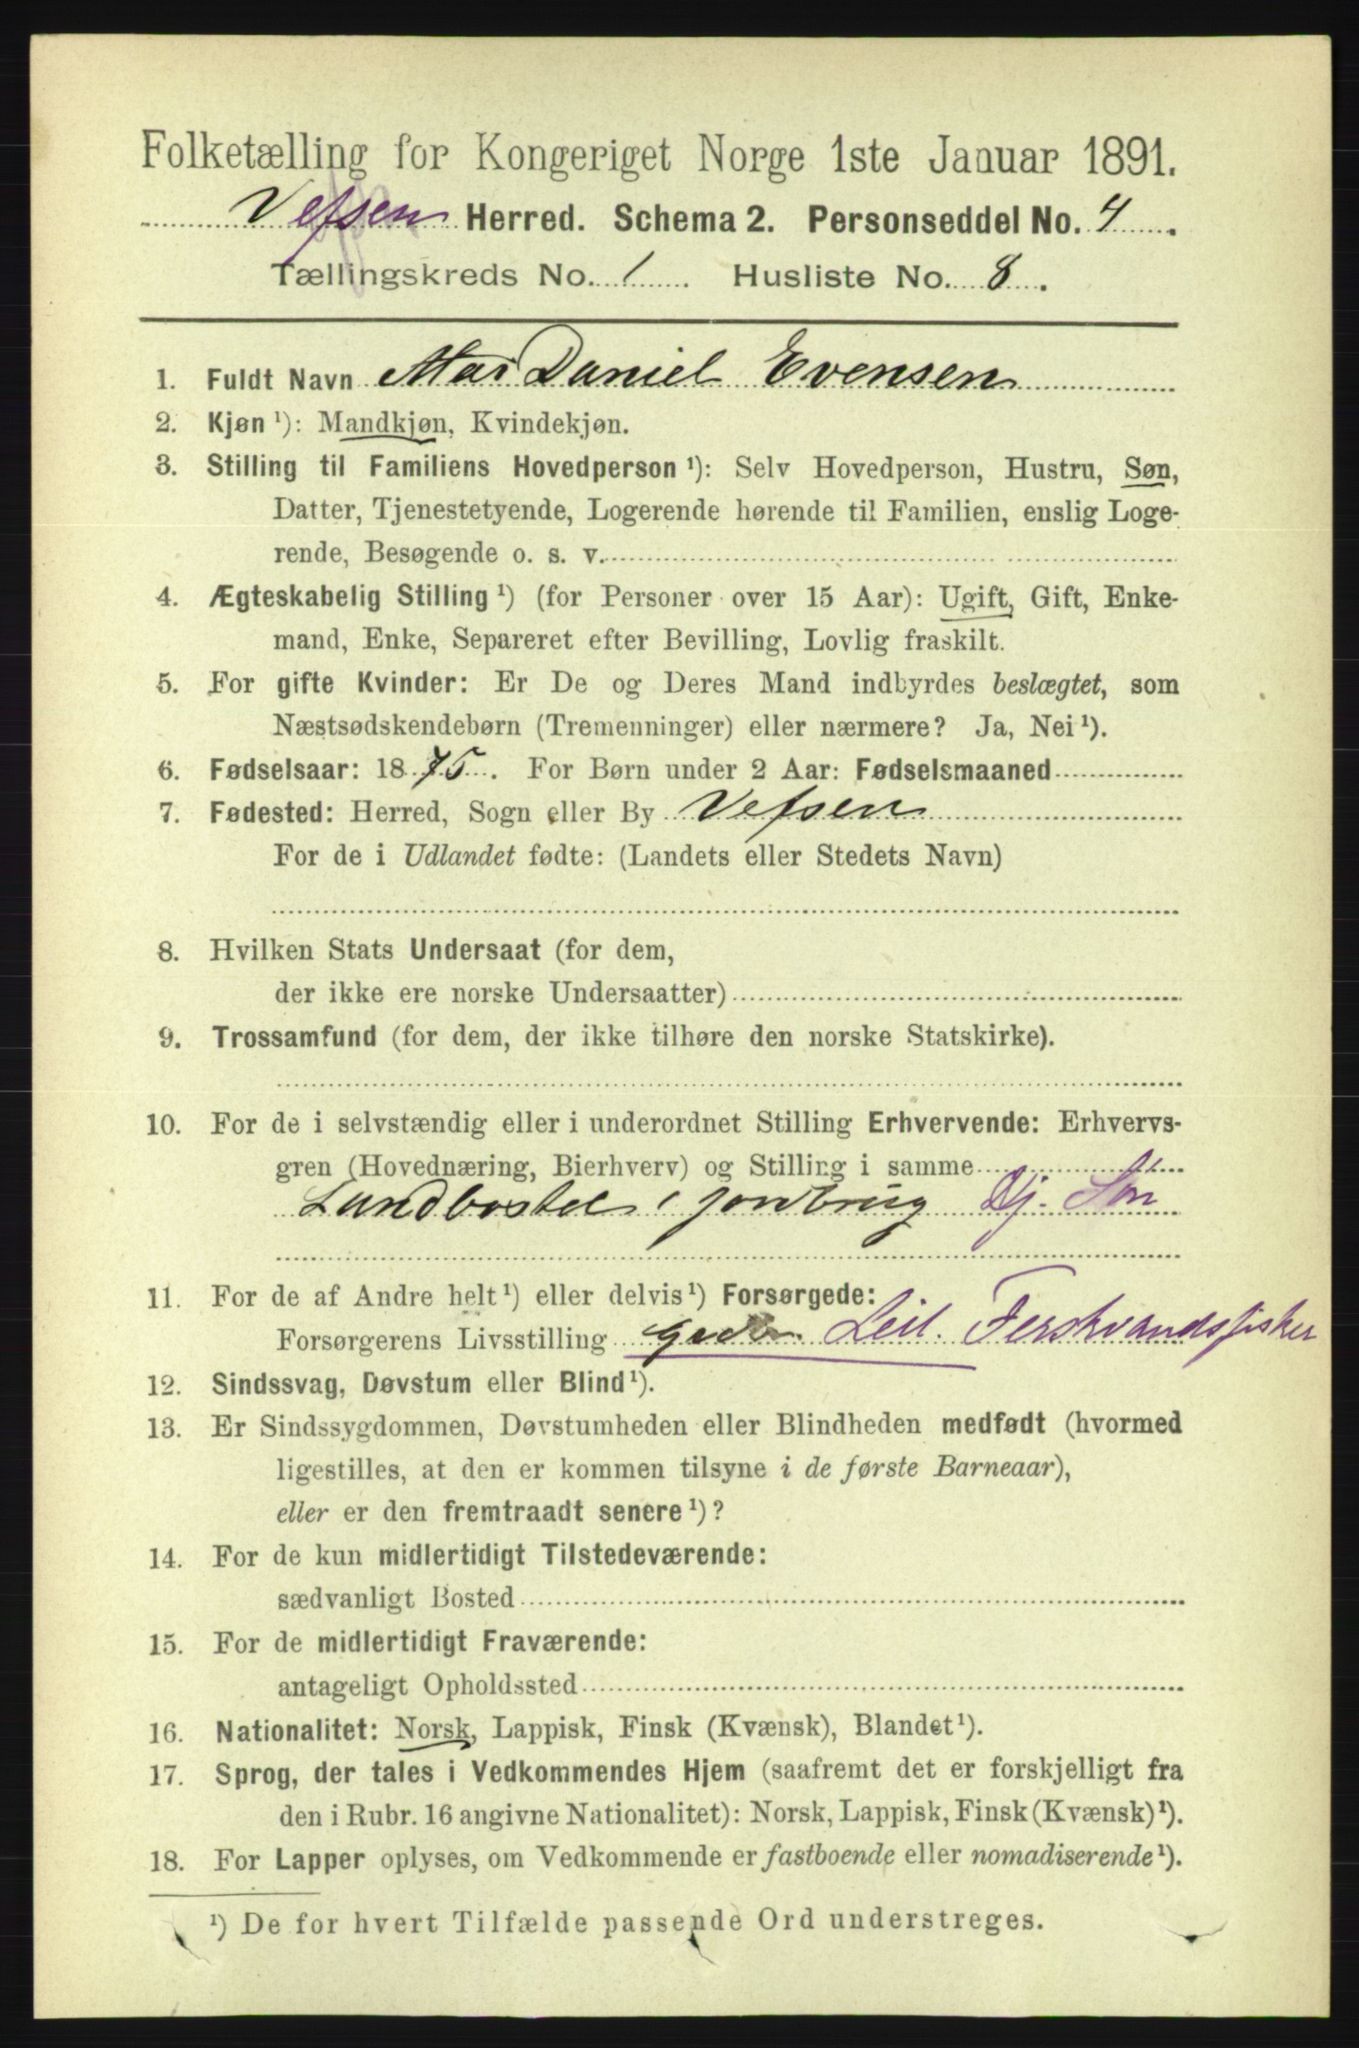 Folketælling for Kongeriget Norge 1ste Januar 1891.
Vefsen Herred. Schema 2. Personseddel No. 4.
Tællingskreds No. 1. Husliste No. 8.
1. Fuldt Navn Daniel Evensen
2. Kjøn ¹): Mandkjøn, Kvindekjøn.
3. Stilling til Familiens Hovedperson ¹): Selv Hovedperson, Hustru, Søn,
Datter, Tjenestetyende, Logerende hørende til Familien, enslig Loge-
rende, Besøgende o. s. v.
4. Ægteskabelig Stilling ¹) (for Personer over 15 Aar): Ugift, Gift, Enke-
mand, Enke, Separeret efter Bevilling, Lovlig fraskilt.
5. For gifte Kvinder: Er De og Deres Mand indbyrdes beslægtet, som
Næstsødskendebørn (Tremenninger) eller nærmere? Ja, Nei ¹).
6. Fødselsaar: 1875. For Børn under 2 Aar: Fødselsmaaned
7. Fødested: Herred, Sogn eller By Vefsen
For de i Udlandet fødte: (Landets eller Stedets Navn)
8. Hvilken Stats Undersaat (for dem,
der ikke ere norske Undersaatter)
9. Trossamfund (for dem, der ikke tilhøre den norske Statskirke).
10. For de i selvstændig eller i underordnet Stilling Erhvervende: Erhvervs-
gren (Hovednæring, Bierhverv) og Stilling i samme
jordbrug Dj. Søn
11. For de af Andre helt ¹) eller delvis ¹) Forsørgede:
Forsørgerens Livsstilling Leil. Ferskvandsfisker
12. Sindssvag, Døvstum eller Blind ¹).
13. Er Sindssygdommen, Døvstumheden eller Blindheden medfødt (hvormed
ligestilles, at den er kommen tilsyne i de første Barneaar),
eller er den fremtraadt senere ¹)?
14. For de kun midlertidigt Tilstedeværende:
sædvanligt Bosted
15. For de midlertidigt Fraværende:
antageligt Opholdssted
16. Nationalitet: Norsk, Lappisk, Finsk (Kvænsk), Blandet ¹).
17. Sprog, der tales i Vedkommendes Hjem (saafremt det er forskjelligt fra
den i Rubr. 16 angivne Nationalitet): Norsk, Lappisk, Finsk (Kvænsk) ¹).
18. For Lapper oplyses, om Vedkommende er fastboende eller nomadiserende ¹).
¹) De for hvert Tilfælde passende Ord understreges.